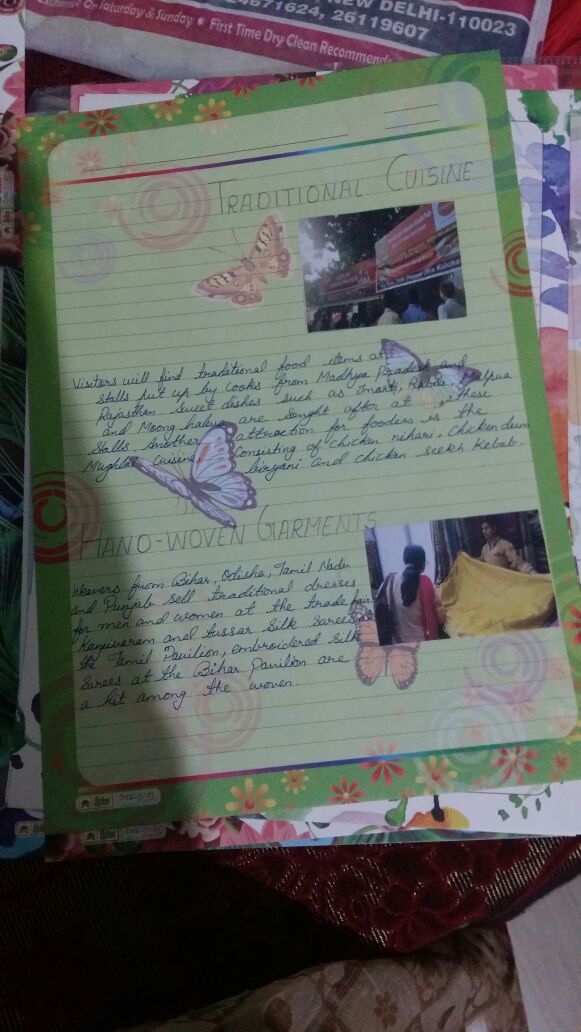 NEW DELHI-110023
24671624, 26119607
Saturday & Sunday • First Time Dry Clean Recommend
TRADITIONAL CUISINE
Mix Kulcha
Visitors will find traditional food items at
stalls put up by cooks from Madhya Pradesh and
Rajasthan. Sweet dishes such as Imarti, Rabdi, Malpua
and Moong halwa are sought after at these
stalls. Another attraction for fooders is the
Mughlai cuisine, consisting of chicken nihari, chicken dum
biryani and chicken seekh kebab.
HAND-WOVEN GARMENTS
Weavers from Bihar, Odisha, Tamil Nadu
and Punjab sell traditional dresses
for men and women at the trade fair
Kanjivaram and tussar silk sarees at
the Tamil Pavilion, embroidered silk
sarees at the Bihar Pavilion are
a hit among the women
Designer
Designer